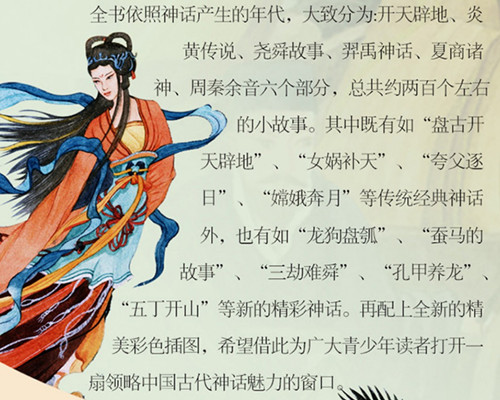 全书依照神话产生的年代，大致分为:开天辟地、炎
黄传说、尧舜故事、羿禹神话、夏商诸
神、周秦余音六个部分，总共约两百个左右
的小故事。其中既有如“盘古开
天辟地”、“女娲补天”、“夸父逐
日”、“嫦娥奔月”等传统经典神话
外，也有如“龙狗盘瓠”、“蚕马的
故事”、“三劫难舜”、“孔甲养龙”、
“五丁开山”等新的精彩神话。再配上全新的精
美彩色插图，希望借此为广大青少年读者打开一
扇领略中国古代神话魅力的窗口。